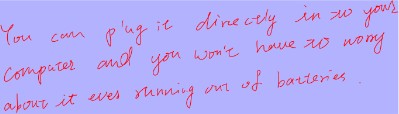 You can plug it directly in to your
computer and you won't have to worry
about it ever running out of batteries.